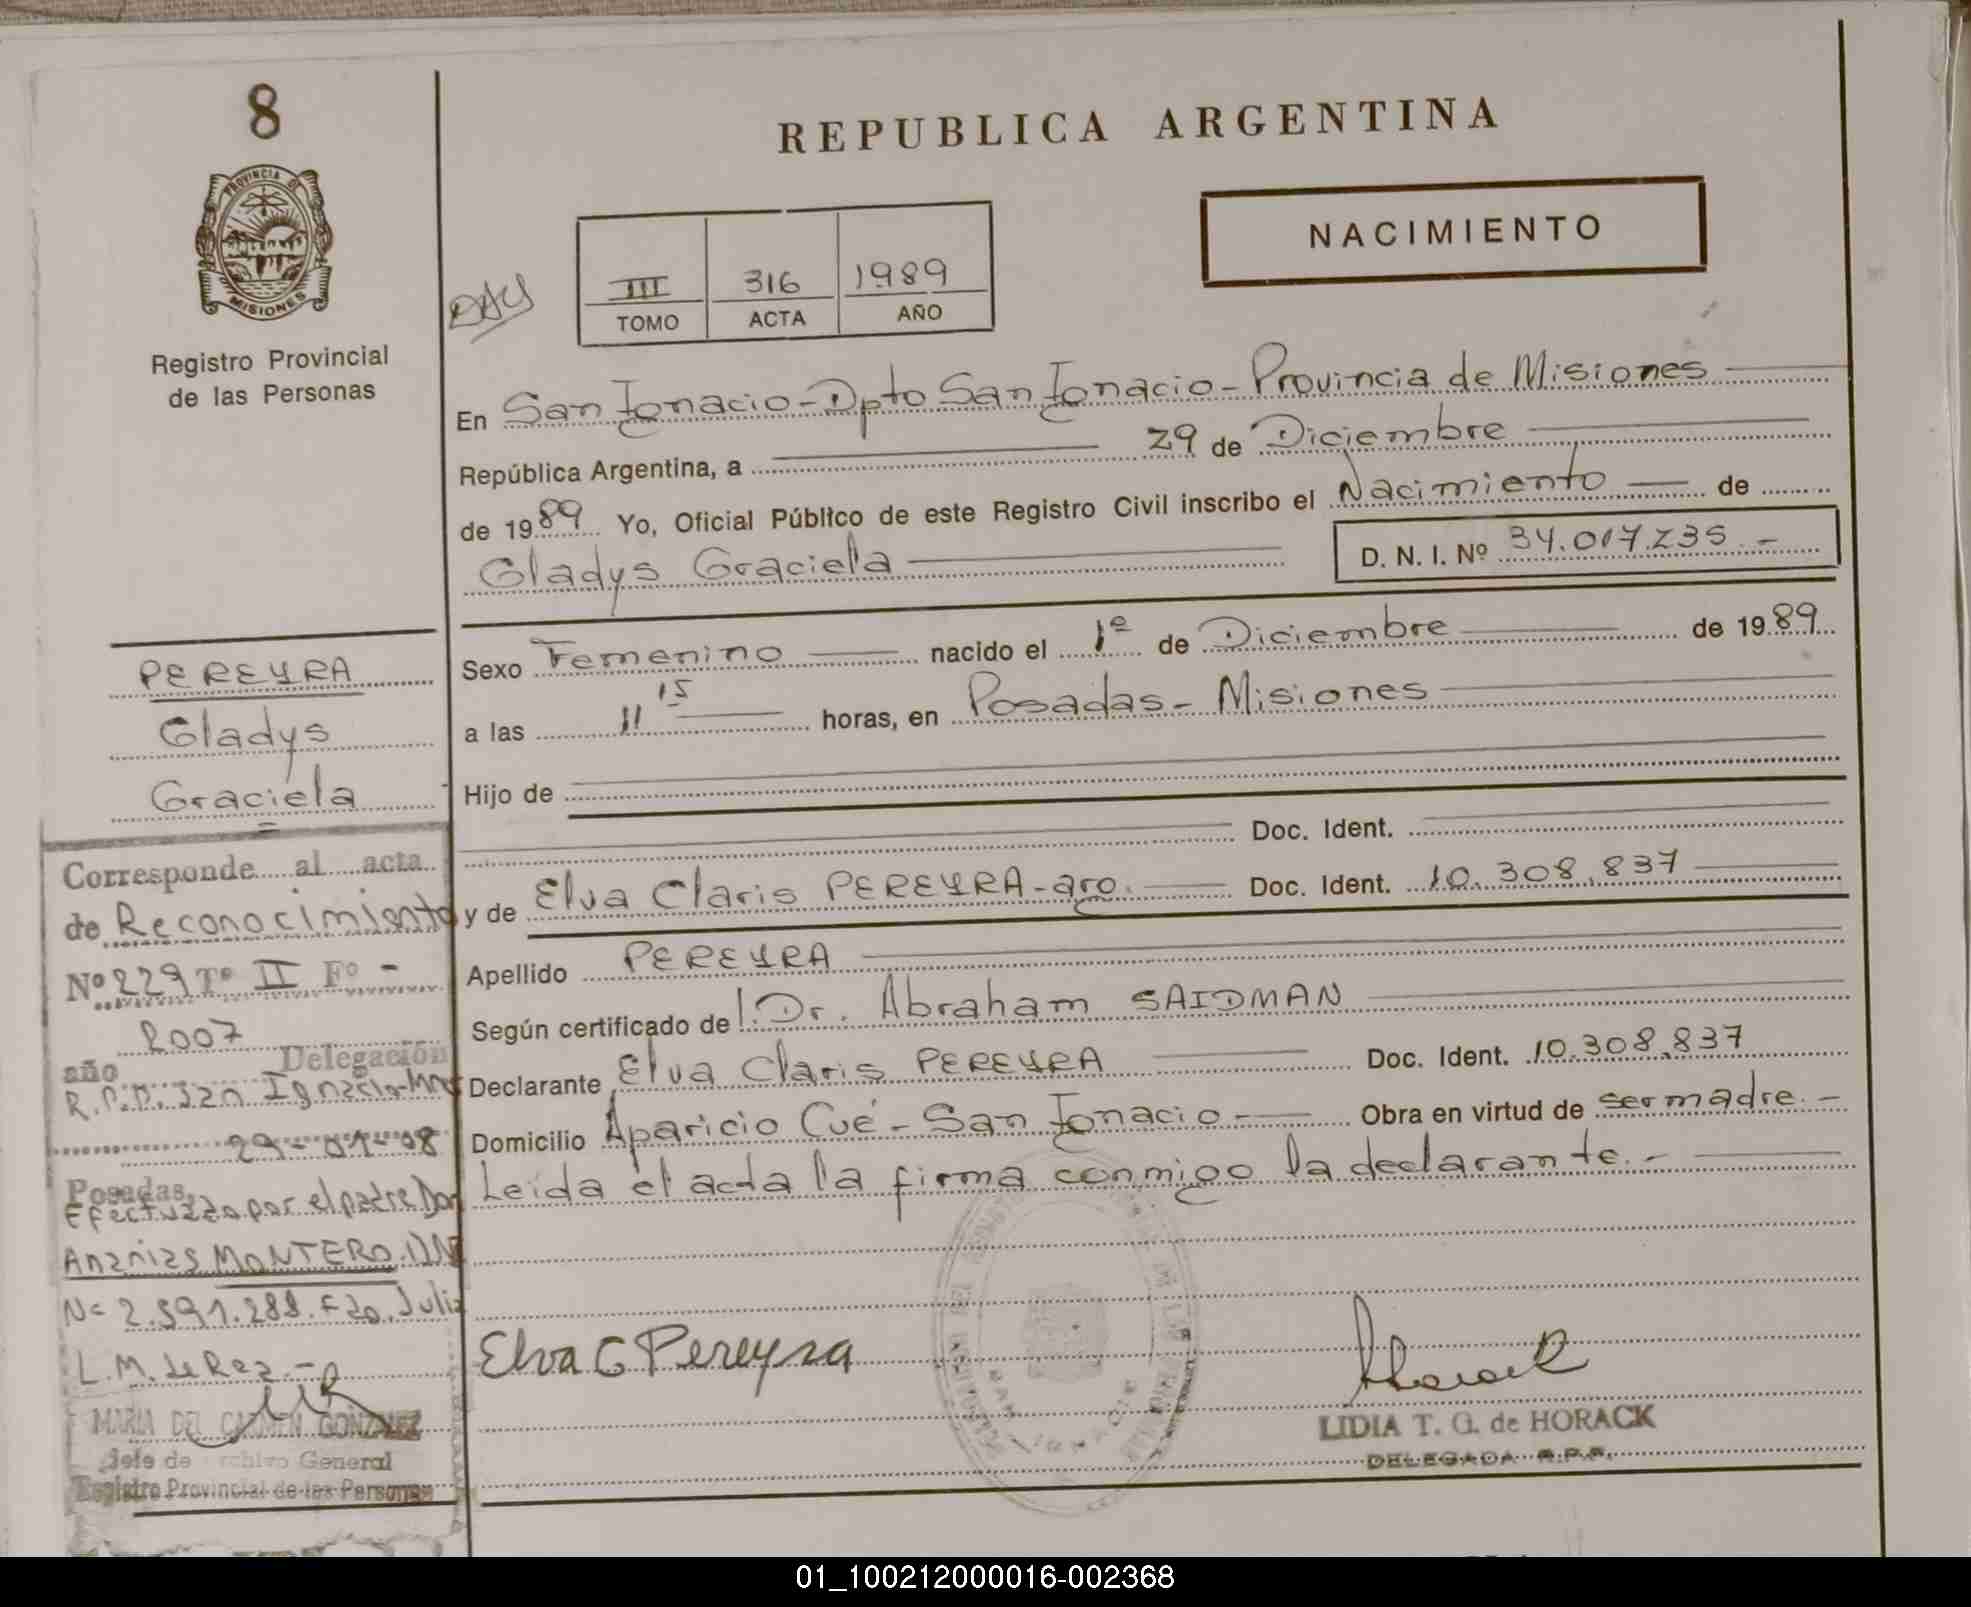 8
PROVINCIA DE
MISIONES
Registro Provincial
de las Personas
REPUBLICA ARGENTINA
NACIMIENTO
III 316 1989
TOMO ACTA AÑO
En San Ignacio - Dpto San Ignacio - Provincia de Misiones
República Argentina, a 29 de Diciembre
de 1989 Yo, Oficial Público de este Registro Civil inscribo el Nacimiento de
Gladys Graciela D. N. I. Nº 34.017.235.-
Sexo Femenino nacido el 1º de Diciembre de 1989
a las 11 15 horas, en Posadas - Misiones
Hijo de
Doc. Ident.
y de Elva Claris PEREYRA - arg. Doc. Ident. 10.308.837
Apellido PEREYRA
Según certificado de l. Dr. Abraham SAIDMAN
Declarante Elva Claris PEREYRA Doc. Ident. 10.308.837
Domicilio Aparicio Cué - San Ignacio Obra en virtud de ser madre.-
Leída el acta la firma conmigo la declarante.-
Elva C Pereyra
Horack
LIDIA T. G. de HORACK
DELEGADA R.P.P.
PEREYRA
Gladys
Graciela
Corresponde al acta
de Reconocimiento
Nº 229 Tº II Fº -
2007
año Delegación
R.P.P. San Ignacio-Mnes
29-01-08
Posadas,
Efectuada por el padre Don
Ananias MONTERO. DNI
Nº 2.591.288. Fdo. Julia
L.M. de Rez.-
MARIA DEL CARMEN GONZALEZ
Jefe de Archivo General
Registro Provincial de las Personas
01_100212000016-002368